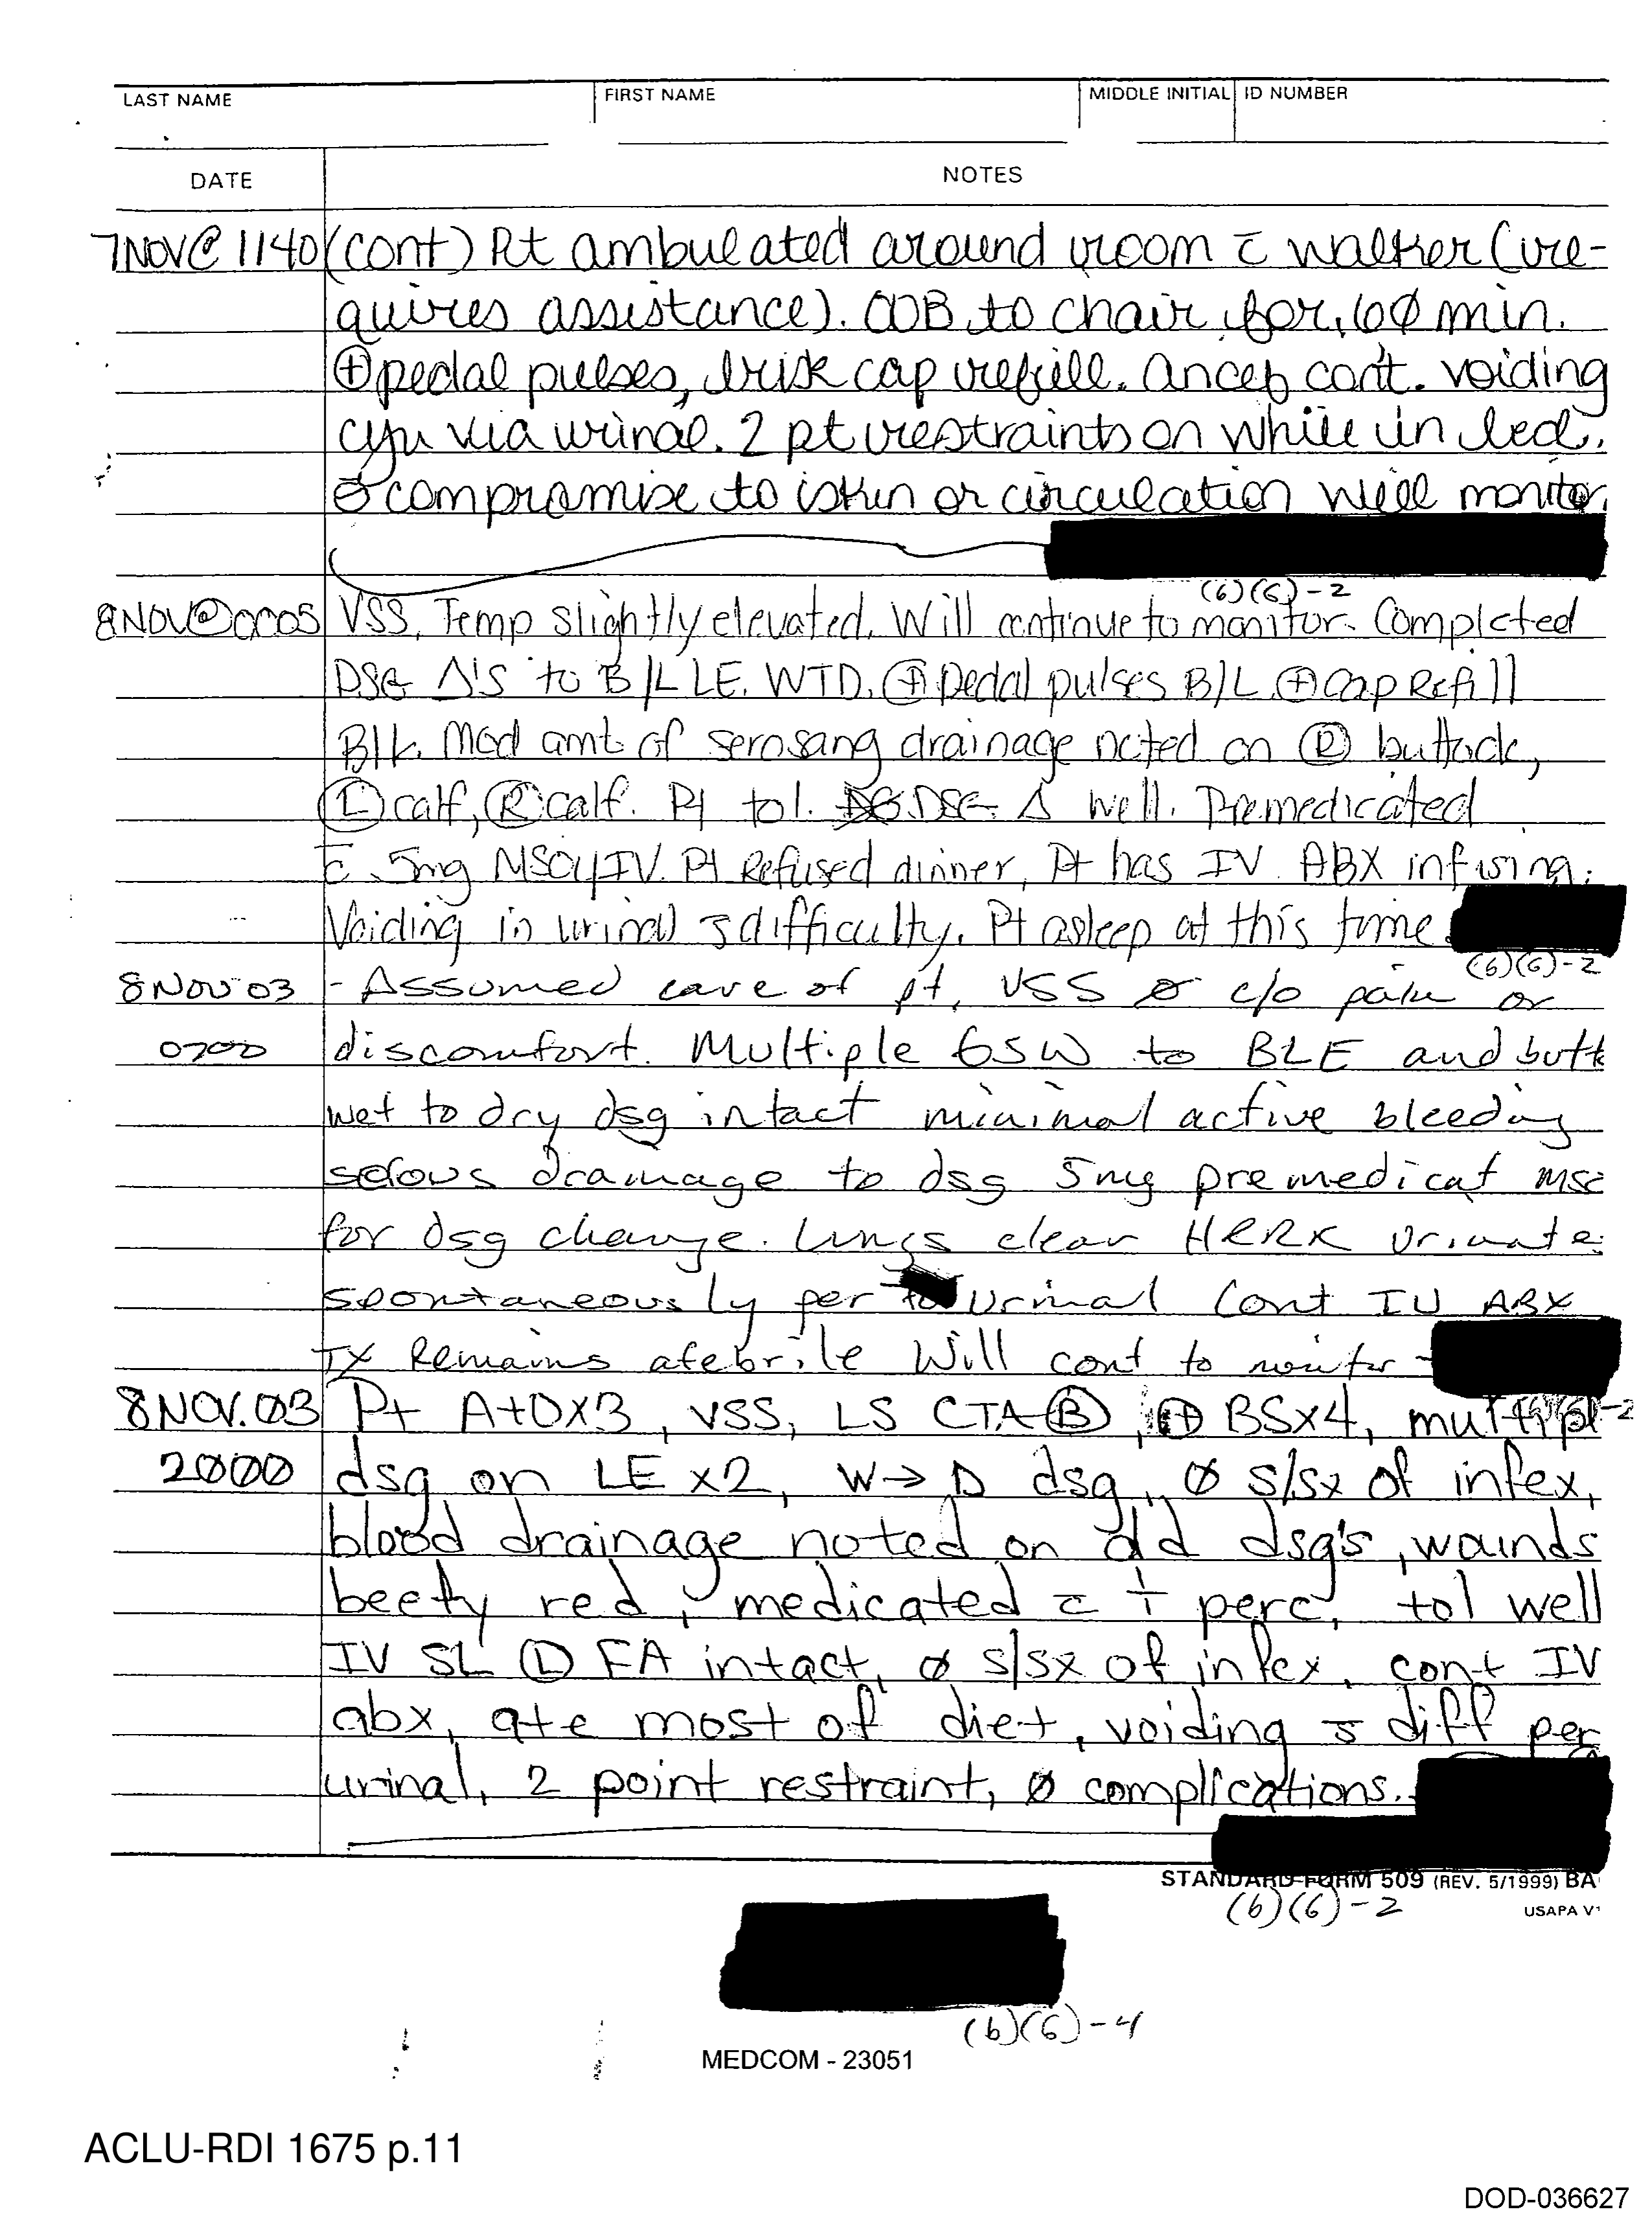 LAST NAME FIRST NAME MIDDLE INITIAL ID NUMBER
DATE NOTES
7NOV@1140 (cont) Pt ambulated around room c̄ walker (re-
quires assistance). OOB to chair for 60 min.
⊕ pedal pulses, brisk cap refill. Ancef cont. voiding
cyu via urinal. 2 pt restraints on while in bed.
∅ compromise to skin or circulation will monitor
(6)(6)-2
8NOV@0005 VSS, Temp slightly elevated. Will continue to monitor. Completed
DSG Δ'S to B/L LE. WTD. ⊕ pedal pulses B/L ⊕ cap Refill
B/L. Mod amt of serosang drainage noted on Ⓡ buttock,
Ⓛ calf, Ⓡ calf. Pt tol. DSG Δ well. Premedicated
c̄ 5mg MSO4 IV. Pt Refused dinner, Pt has IV ABX infusing.
Voiding in urinal s̄ difficulty. Pt asleep at this time.
(6)(6)-2
8 NOV 03 - Assumed care of pt, VSS ∅ c/o pain or
0700 discomfort. Multiple GSW to BLE and butt
wet to dry dsg intact minimal active bleeding
serous drainage to dsg 5mg premedicat MSO
for dsg change. Lungs clear HRRR Urinate
spontaneously per urinal Cont IV ABX
TX Remains afebrile Will cont to monitor -
(6)(6)-2
8 NOV. 03 Pt A+OX3, VSS, LS CTA Ⓑ, ⊕ BSX4, multipl
2000 dsg on LE x2, W→D dsg, ∅ s/sx of infex,
blood drainage noted on old dsg's, wounds
beefy red, medicated c̄ † perc, tol well
IV SL Ⓛ FA intact, ∅ s/sx of infex, cont IV
abx, ate most of diet, voiding s̄ diff per
urinal, 2 point restraint, ∅ complications.
STANDARD FORM 509 (REV. 5/1999) BA
(b)(6)-2
USAPA V1
(b)(6)-4
MEDCOM - 23051
ACLU-RDI 1675 p.11
DOD-036627